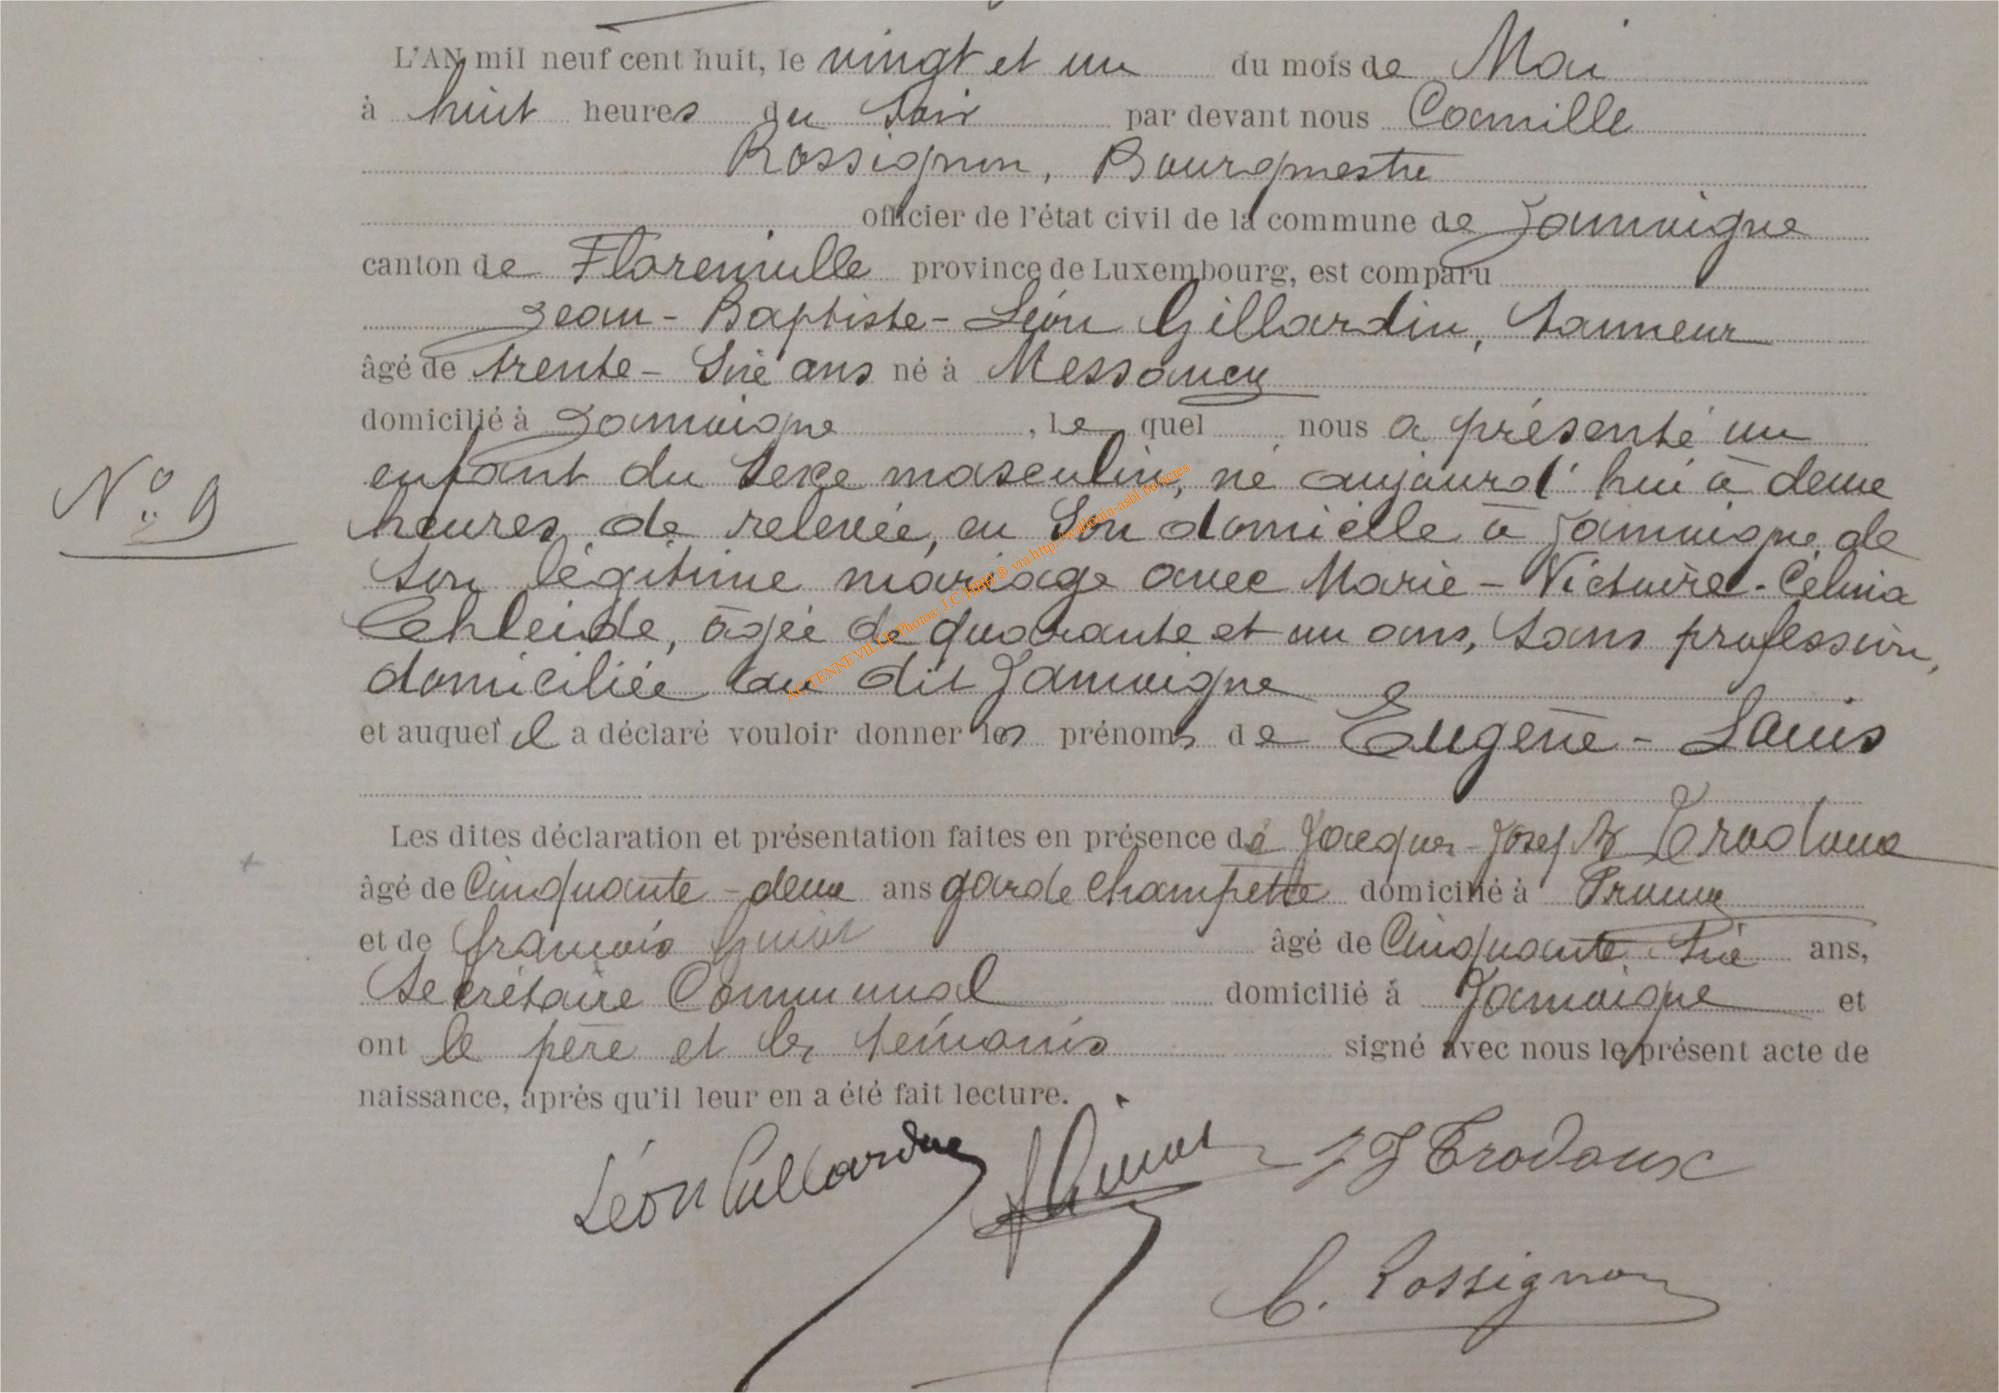 L'AN mil neuf cent huit, le vingt et un du mois de Mai
à huit heures du soir par devant nous Camille
Rossignon, Bourgmestre
officier de l'état civil de la commune de Jamoigne
canton de Florenville province de Luxembourg, est comparu
Jean-Baptiste-Léon Gillardin, tanneur
âgé de trente-six ans né à Messancy
domicilié à Jamoigne, le quel nous a présenté un
N° 9
enfant du sexe masculin, né aujourd'hui à deux
heures de relevée, en son domicile à Jamoigne, de
son légitime mariage avec Marie-Victoire-Célina
Schleide, âgée de quarante et un ans, sans profession,
domiciliée au dit Jamoigne
et auquel il a déclaré vouloir donner les prénoms de Eugène-Louis
Les dites déclaration et présentation faites en présence de Jacques-Joseph Trodoux
âgé de cinquante-deux ans garde champêtre domicilié à Prouvy
et de François Guiot âgé de cinquante six ans,
secrétaire communal domicilié à Jamoigne et
ont le père et les témoins signé avec nous le présent acte de
naissance, après qu'il leur en a été fait lecture.
Léon Gillardin F Guiot J J Trodoux
C. Rossignon